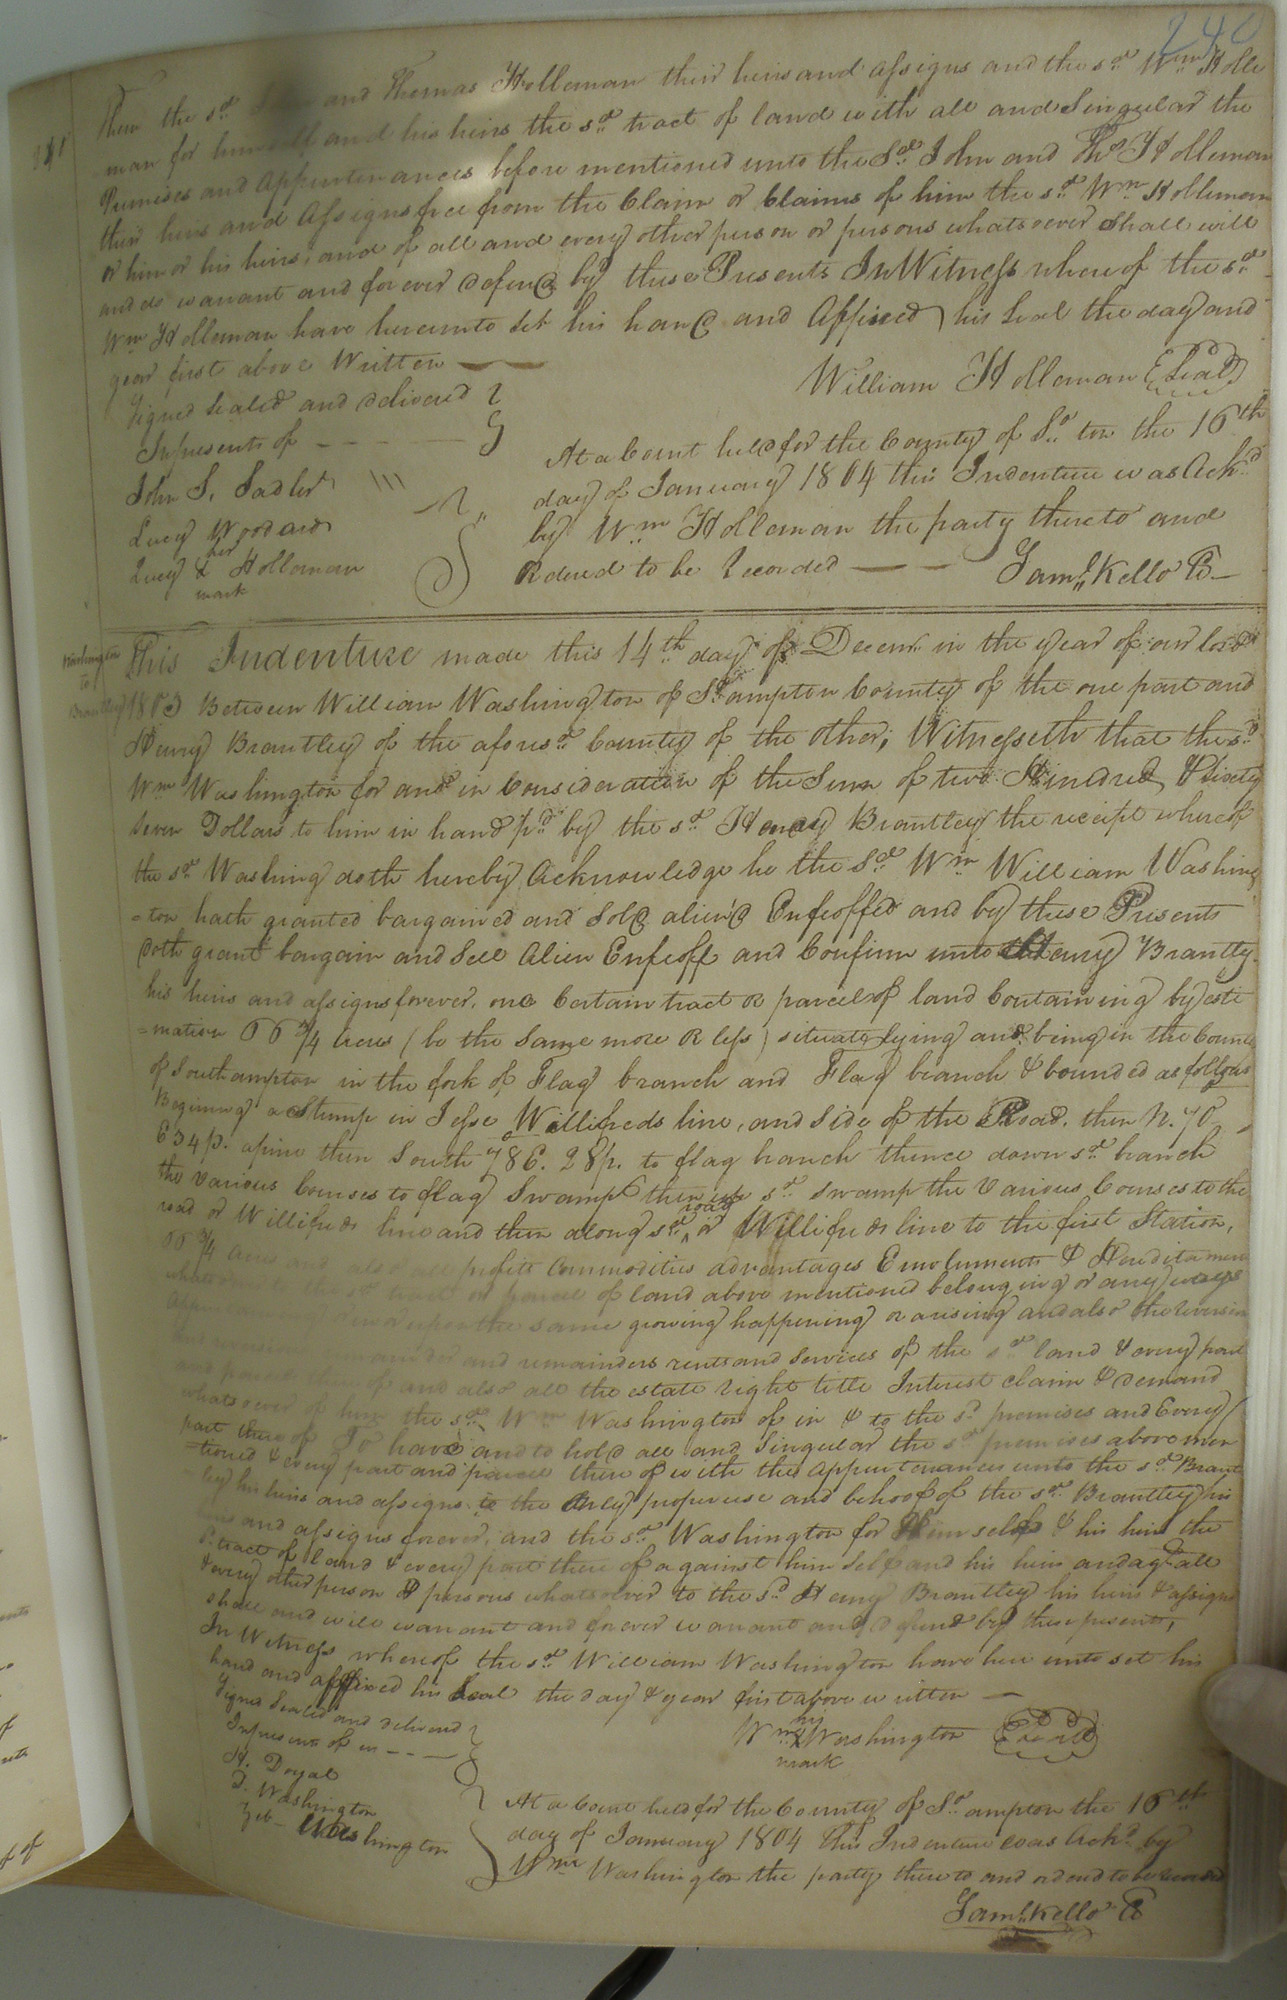 240
241
them the sd John and Thomas Holleman their heirs and assigns and the sd Wm Holle
man for himself and his heirs the sd tract of land with all and Singular the
Premises and Appurtenances before mentioned unto the Sd John and Thos Holleman
their heirs and Assigns free from the Claim or Claims of him the sd Wm Holleman
or him or his heirs, and of all and every other person or persons whatsoever shall will
and do warrant and forever defend by these Presents In Witness whereof the sd
Wm Holleman have hereunto Set his hand and Affixed his Seal the day and
year first above Written
William Holleman (Seal)
Signed Sealed and delivered
In presents of
John S. Sadler
Lucy Woodard
her
Lucy X Holleman
mark
At a Court held for the County of So ton the 16th
day of January 1804 this Indenture was Ackd
by Wm Holleman the party thereto and
Ordered to be Recorded
Saml Kello Ck
Washington
to
Brantley
This Indenture made this 14th day of Decemr in the year of our lord
1803 Between William Washington of S.ampton County of the one part and
Henry Brantley of the aforesd County of the other; Witnesseth that the sd
Wm Washington for and in Consideration of the Sum of two Hundred & Sixty
Seven Dollars to him in hand pd by the sd Henry Brantley the receipt whereof
the sd Washing doth hereby Acknowledge he the Sd Wm William Washing
=ton hath granted bargained and Sold alien'd Enfeoffed and by these Presents
doth grant bargain and Sell Alien Enfeoff and Confirm unto Henry Brantly
his heirs and assigns forever, one Certain tract or parcel of land Containing by esti
=mation 66 3/4 Acres (be the Same more or less) situate lying and being in the County
of Southampton in the fork of Flag branch and Flag branch & bounded as follows
Begining a Stump in Jesse Willifreds line, and Side of the Road. then N. 70
E 34 p. apine then South 78 E. 28 p. to flag branch thence down sd branch
the Various Courses to flag Swamp then up sd Swamp the Various Courses to the
road
road or Willifreds line and then along sd or Willifreds line to the first Station,
66 3/4 acres and all profits Commodities advantages Emoluments & Hereditaments
whatsoever to the sd tract or parcel of land above mentioned belonging or any ways
upon the same growing happening or arising and also the reversion
remainder and remainders rents and Services of the sd land & every part
and parcel thereof and also all the estate right title Interest claim & demand
whatsoever of him the sd Wm Washington of in & to the sd premises and Every
part thereof To have and to hold all and Singular the sd premises above men
=tioned & every part and parcel thereof with the Appurtenances unto the sd Brant
=ley his heirs and assigns to the Only proper use and behoof of the sd Brantley his
heirs and assigns forever, and the sd Washington for Himself & his heirs the
s. tract of land & every part thereof against him Self and his heirs and agt all
& every other person & persons whatsoever to the sd Henry Brantley his heirs & assigns
shall and will warrant and forever warrant and defend by these presents,
In Witness whereof the sd William Washington have here unto set his
hand and affixed his Seal the day & year first above written
his
Wm X Washington (Seal)
mark
Signed Sealed and delivered
In presents of us
H. Doyal
J. Washington
Zeb Washington
At a Court held for the County of So ampton the 16th
day of January 1804 This Indenture was Ackd by
Wm Washington the party thereto and ordered to be recorded
Saml Kello Ck